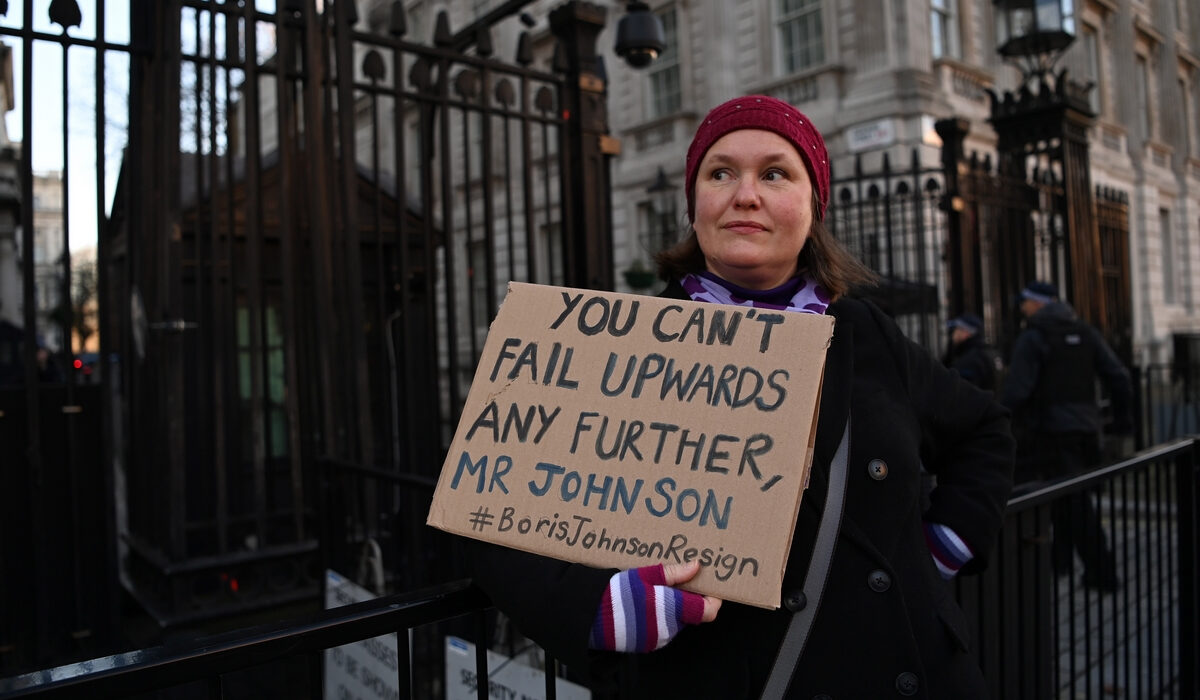 YOU CAN'T
FAIL UPWARDS
ANY FURTHER,
MR JOHNSON
#BorisJohnsonResign